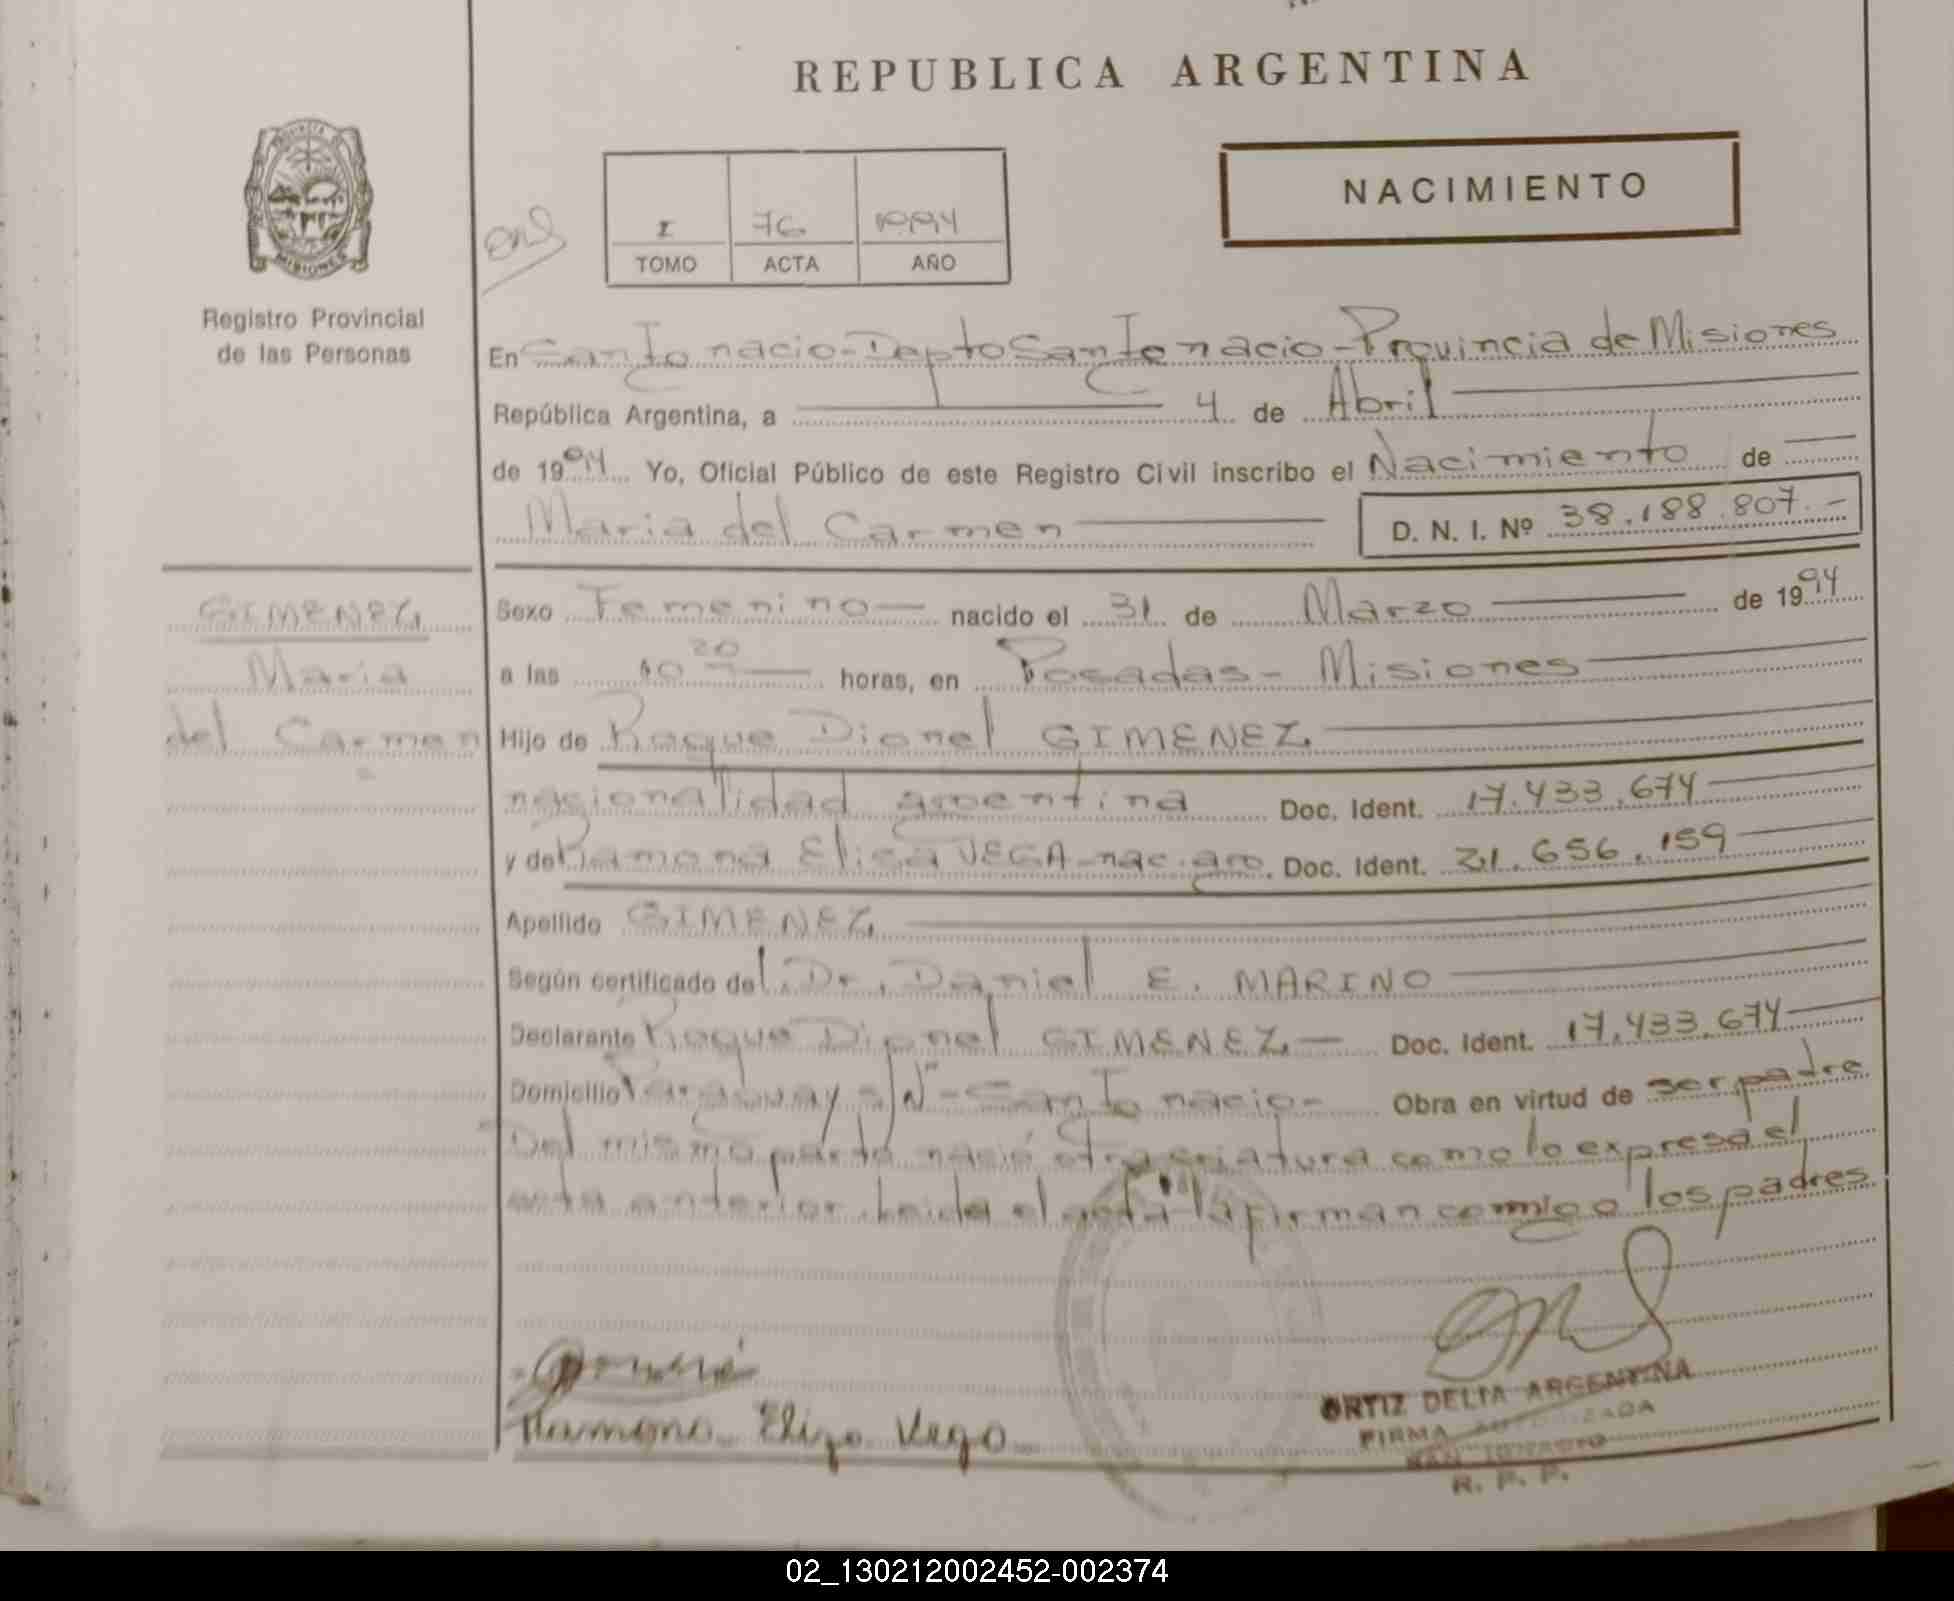 REPUBLICA ARGENTINA
NACIMIENTO
I 76 1994
TOMO ACTA AÑO
MISIONES
Registro Provincial
de las Personas
En San Ignacio - Depto San Ignacio - Provincia de Misiones
República Argentina, a 4 de Abril
de 1994 Yo, Oficial Público de este Registro Civil inscribo el Nacimiento de
Maria del Carmen D. N. I. Nº 38.188.807.-
GIMENEZ
Maria
del Carmen
Sexo Femenino nacido el 31 de Marzo de 1994
a las 10 20 horas, en Posadas - Misiones
Hijo de Roque Dionel GIMENEZ
nacionalidad argentina Doc. Ident. 17.433.674
y de Ramona Elisa VEGA - nac. arg. Doc. Ident. 21.656.159
Apellido GIMENEZ
Según certificado del Dr. Daniel E. MARINO
Declarante Roque Dionel GIMENEZ - Doc. Ident. 17.433.674
Domicilio Paraguay s/Nº - San Ignacio - Obra en virtud de ser padre
Del mismo parto nació otra criatura como lo expresa el
acta anterior. Leida el acta la firman conmigo los padres
Ramona Eliza Vega
ORTIZ DELIA ARGENTINA
FIRMA AUTORIZADA
SAN IGNACIO
R. P. P.
02_130212002452-002374